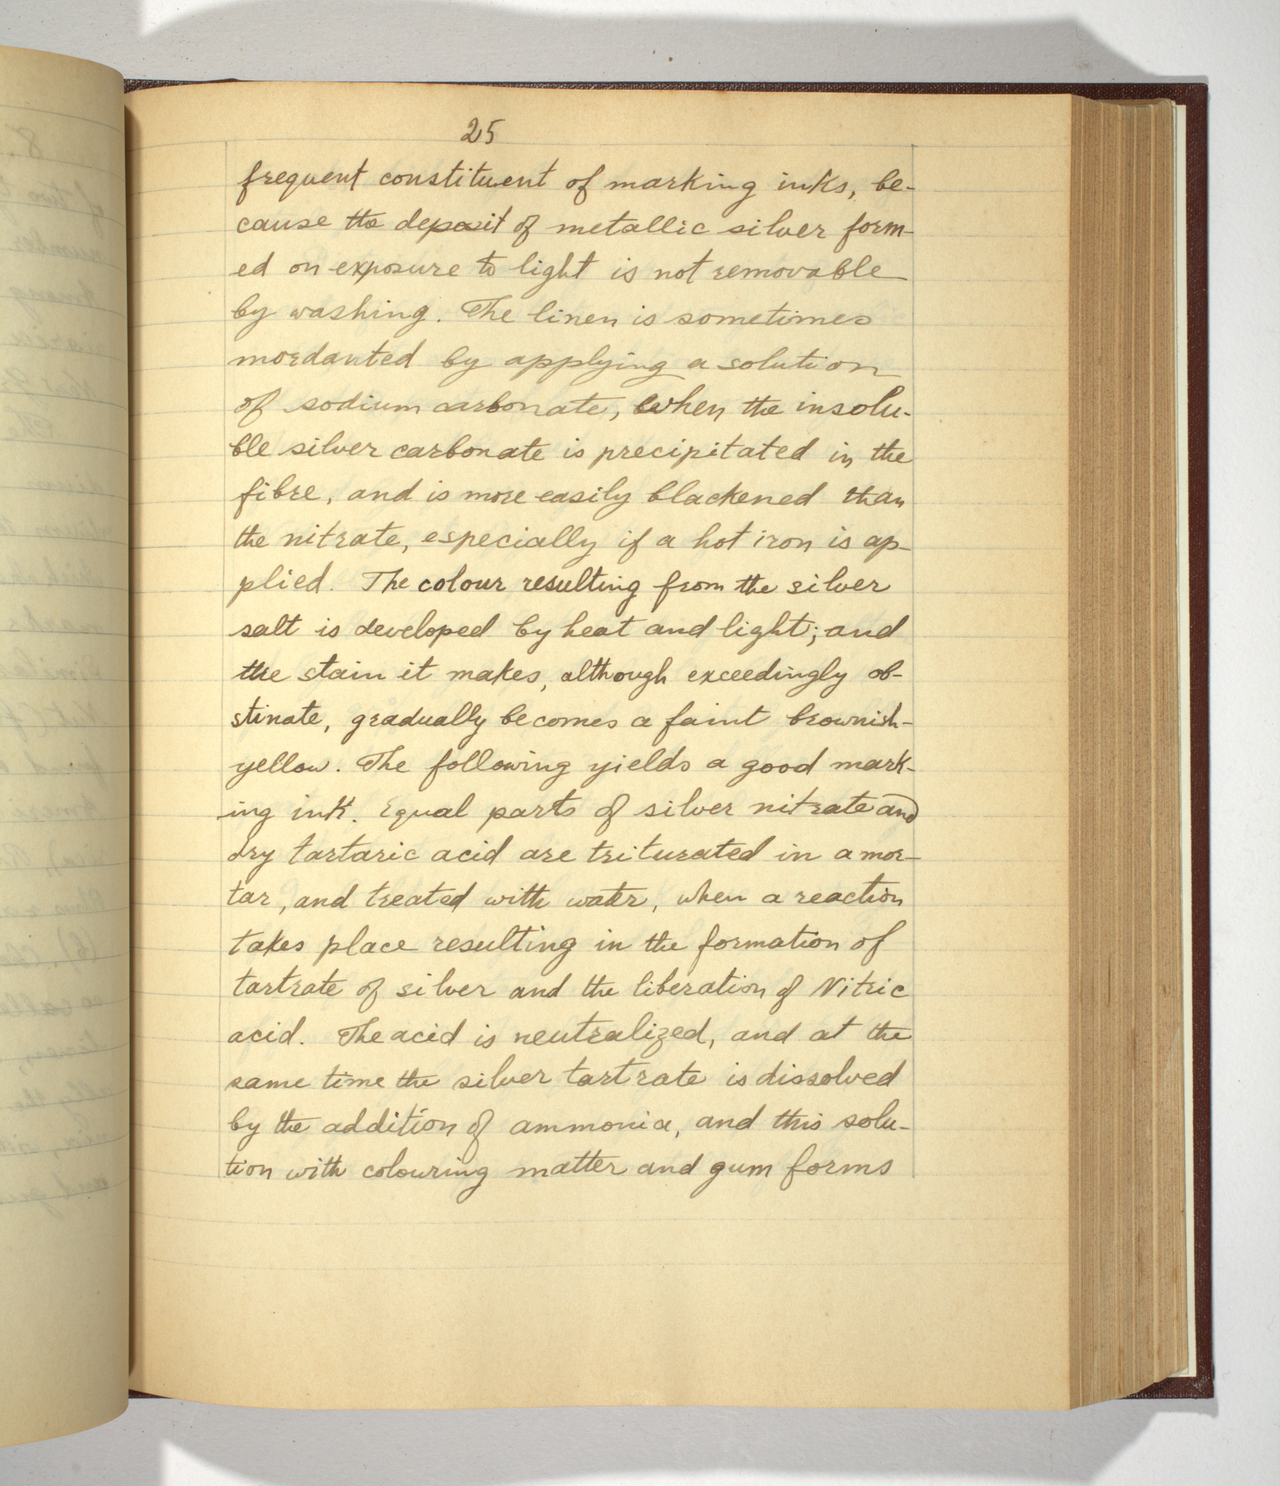 25
frequent constituent of marking inks, be-
cause the deposit of metallic silver form-
ed on exposure to light is not removable
by washing. The linen is sometimes
mordanted by applying a solution
of sodium carbonate, when the insolu-
ble silver carbonate is precipitated in the
fibre, and is more easily blackened than
the nitrate, especially if a hot iron is ap-
plied. The colour resulting from the silver
salt is developed by heat and light; and
the stain it makes, although exceedingly ob-
stinate, gradually becomes a faint brownish-
yellow. The following yields a good mark-
ing ink. Equal parts of silver nitrate and
dry tartaric acid are triturated in a mor-
tar, and treated with water, when a reaction
takes place resulting in the formation of
tartrate of silver and the liberation of Nitric
acid. The acid is neutralized, and at the
same time the silver tartrate is dissolved
by the addition of ammonia, and this solu-
tion with colouring matter and gum forms